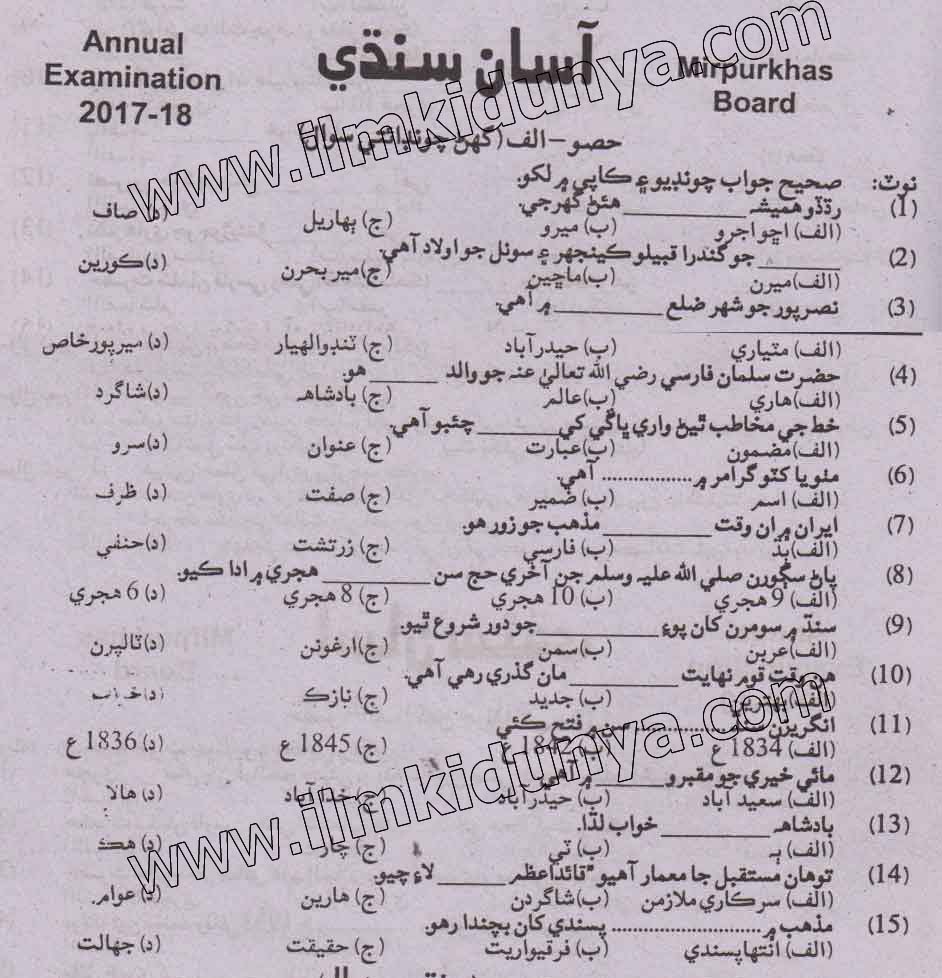 Annual Examination 2017-18
آسان سنڌي
Mirpurkhas Board
حصو - الف (گهڻ چونڊائتي سوال)
نوٽ: صحيح جواب چونڊيو ۽ ڪاپي ۾ لکو.
(1) رڌڻو هميشہ ________ هئڻ گهرجي.
(الف) اڇو اجرو (ب) ميرو (ج) ٻهاريل (د) صاف
(2) ________ جو گندرا قبيلو ڪينجهر ۽ سونل جو اولاد آهي.
(الف) ميرن (ب) ماڇين (ج) مير بحرن (د) ڪورين
(3) نصرپور جو شهر ضلع ________ ۾ آهي.
(الف) مٽياري (ب) حيدرآباد (ج) ٽنڊوالهيار (د) ميرپورخاص
(4) حضرت سلمان فارسي رضي الله تعاليٰ عنہ جو والد ________ هو.
(الف) هاري (ب) عالم (ج) بادشاهہ (د) شاگرد
(5) خط جي مخاطب ٿيڻ واري ڀاڱي کي ________ چئبو آهي.
(الف) مضمون (ب) عبارت (ج) عنوان (د) سرو
(6) مئو يا کٽو گرامر ۾ .................... آهي.
(الف) اسم (ب) ضمير (ج) صفت (د) ظرف
(7) ايران ۾ ان وقت ________ مذهب جو زور هو.
(الف) ٻڌ (ب) فارسي (ج) زرتشت (د) حنفي
(8) پاڻ سڳورن صلي الله عليہ وسلم جن آخري حج سن ________ هجري ۾ ادا ڪيو.
(الف) 9 هجري (ب) 10 هجري (ج) 8 هجري (د) 6 هجري
(9) سنڌ ۾ سومرن کان پوءِ ________ جو دور شروع ٿيو.
(الف) عربن (ب) سمن (ج) ارغونن (د) ٽالپرن
(10) هن وقت قوم نهايت ________ مان گذري رهي آهي.
(الف) بهترين (ب) جديد (ج) نازڪ (د) خراب
(11) انگريزن سنڌ .................... سن ۾ فتح ڪئي
(الف) 1834 ع (ب) 1842 ع (ج) 1845 ع (د) 1836 ع
(12) مائي خيري جو مقبرو ________ ۾ آهي.
(الف) سعيد آباد (ب) حيدرآباد (ج) خدا آباد (د) هالا
(13) بادشاهہ ________ خواب لڌا.
(الف) ٻہ (ب) ٽي (ج) چار (د) هڪ
(14) توهان مستقبل جا معمار آهيو "قائداعظم ________ لاءِ چيو.
(الف) سرڪاري ملازمن (ب) شاگردن (ج) هارين (د) عوام.
(15) مذهب ۾ .................... پسندي کان بچندا رهو.
(الف) انتهاپسندي (ب) فرقيواريت (ج) حقيقت (د) جهالت
www.ilmkidunya.com
www.ilmkidunya.com